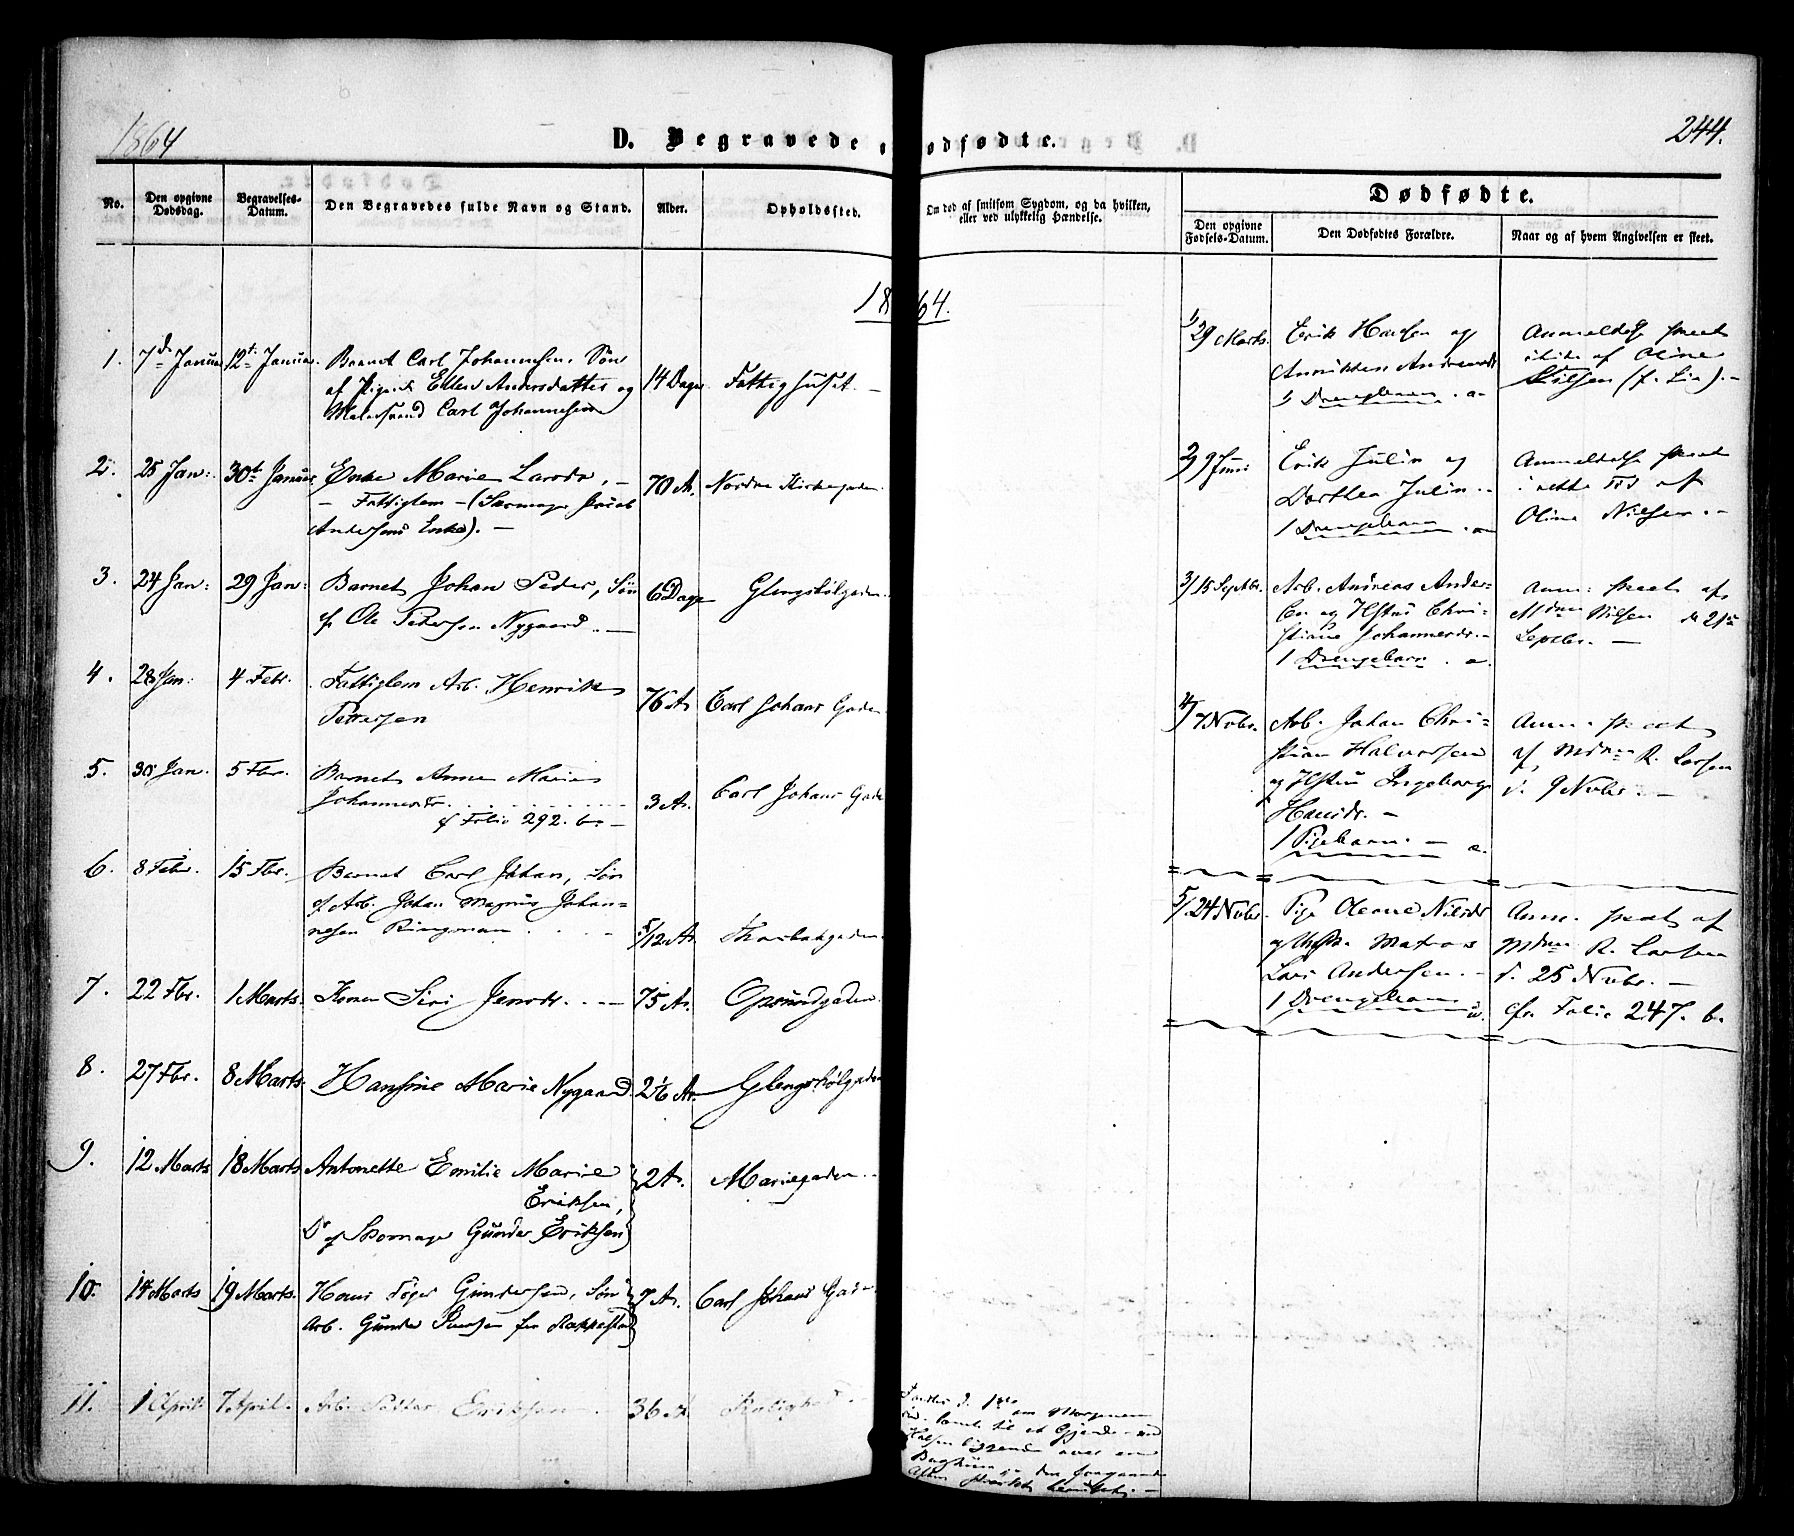 1864
D. Begravede o ødfødte.
244.
No.
Den opgivne Dødsdag.
Begravelses-Datum.
Den Begravedes fulde Navn og Stand.
Alder.
Opholdssted.
Om død af smitsom Sygdom, og da hvilken, eller ved ulykkelig Hændelse.
Dødfødte.
Den opgivne Fødsels-Datum.
Den Dødfødtes Forældre.
Naar og af hvem Angivelsen er skeet.
1864.
1. 7de Januar 12te Januar. Barnet Carl Johannesen, Søn
af Pige Ellen Andersdatter og 14 Dage Fattighuset. —
Malersvend Carl Johannesen
2. 25 Jan: 30te Januar Enke Marie Larsdr, — 70 A. Nordre Kirkegaden.
— Fattiglem — (Skomager Jacob
Andersens Enke). —
3. 24 Jan: 29 Jan: Barnet Johan Peder, Søn 6 Dage Glengshølgaden.
af Ole Petersen Nygaard. —
4. 28 Jan: 4 Febr. Fattiglem Arb. Henrik 76 A. Carl Johans Gaden
Pettersen
5. 30 Jan. 5 Fbr. Barnet Anne Marie
Johannesdr. 3 A. Carl Johans Gade
cf Folio 292. b. —
6. 8 Febr. 15 Fbr. Barnet Carl Johan, Søn
af Arb. Johan Magnus Johan-
nesen Ringsman 5/12 A. Thorbakgaden.
7. 22 Fbr. 1 Marts. Konen Siri Jensdr. 75 A. Opsundgaden.
8. 27 Fbr. 8 Marts. Hansine Marie Nygaard 2 1/6 A. Glengshølgaden
9. 12 Marts 18 Marts. Antonette Emilie Marie 2 A. Mariegaden.
Eriksen,
Dr af Skomager Gunder Eriksen
10. 14 Marts 19 Marts. Hans Tøger Gundersen, Søn 7 A. Carl Johans Gaden
Arb. Gunder fra Rakkestad
11. 1 April. 7 April. Arb. Petter Eriksen 36 A. Rolighed.
Fandtes d. 1ste om Morgenen
til et Gjerde
Halsen liggende over en
i den foregaaende
Aften
1/ 29 Marts. Erik Hansen og
Andreasdr
1 Drengebarn. u.
Anmeldelse skeet
af Oline
Nilsen (f. Lie). —
2/ 9 Juni Erik Julin og
Dorthea Julin.
1 Drengebarn
Anmeldelse skeet
i rette Tid af
Oline Nilsen. —
3/ 15 Septbr. Arb. Andreas Ander-
sen og Hstru Chri-
stiane Johannesdr. —
1 Drengebarn. u.
Anm: skeet af
Mdme Nilsen d. 21de
Septbr. —
4/ 7 Nvbr. Arb. Johan Chri-
stian Halvorsen
og Hstru Ingeborg
Hansdr. —
1 Pigebarn. — æ.
Anm. skeet
af Mdme R. Larsen
d. 9 Nvbr. —
5/ 24 Nvbr. Pige Oleane Nilsdr
og Matros
Lars Andersen. —
1 Drengebarn u.
Anm. skeet af
Mdme R. Larsen
d. 25 Nvbr. —
cfr. Folio 247. b.